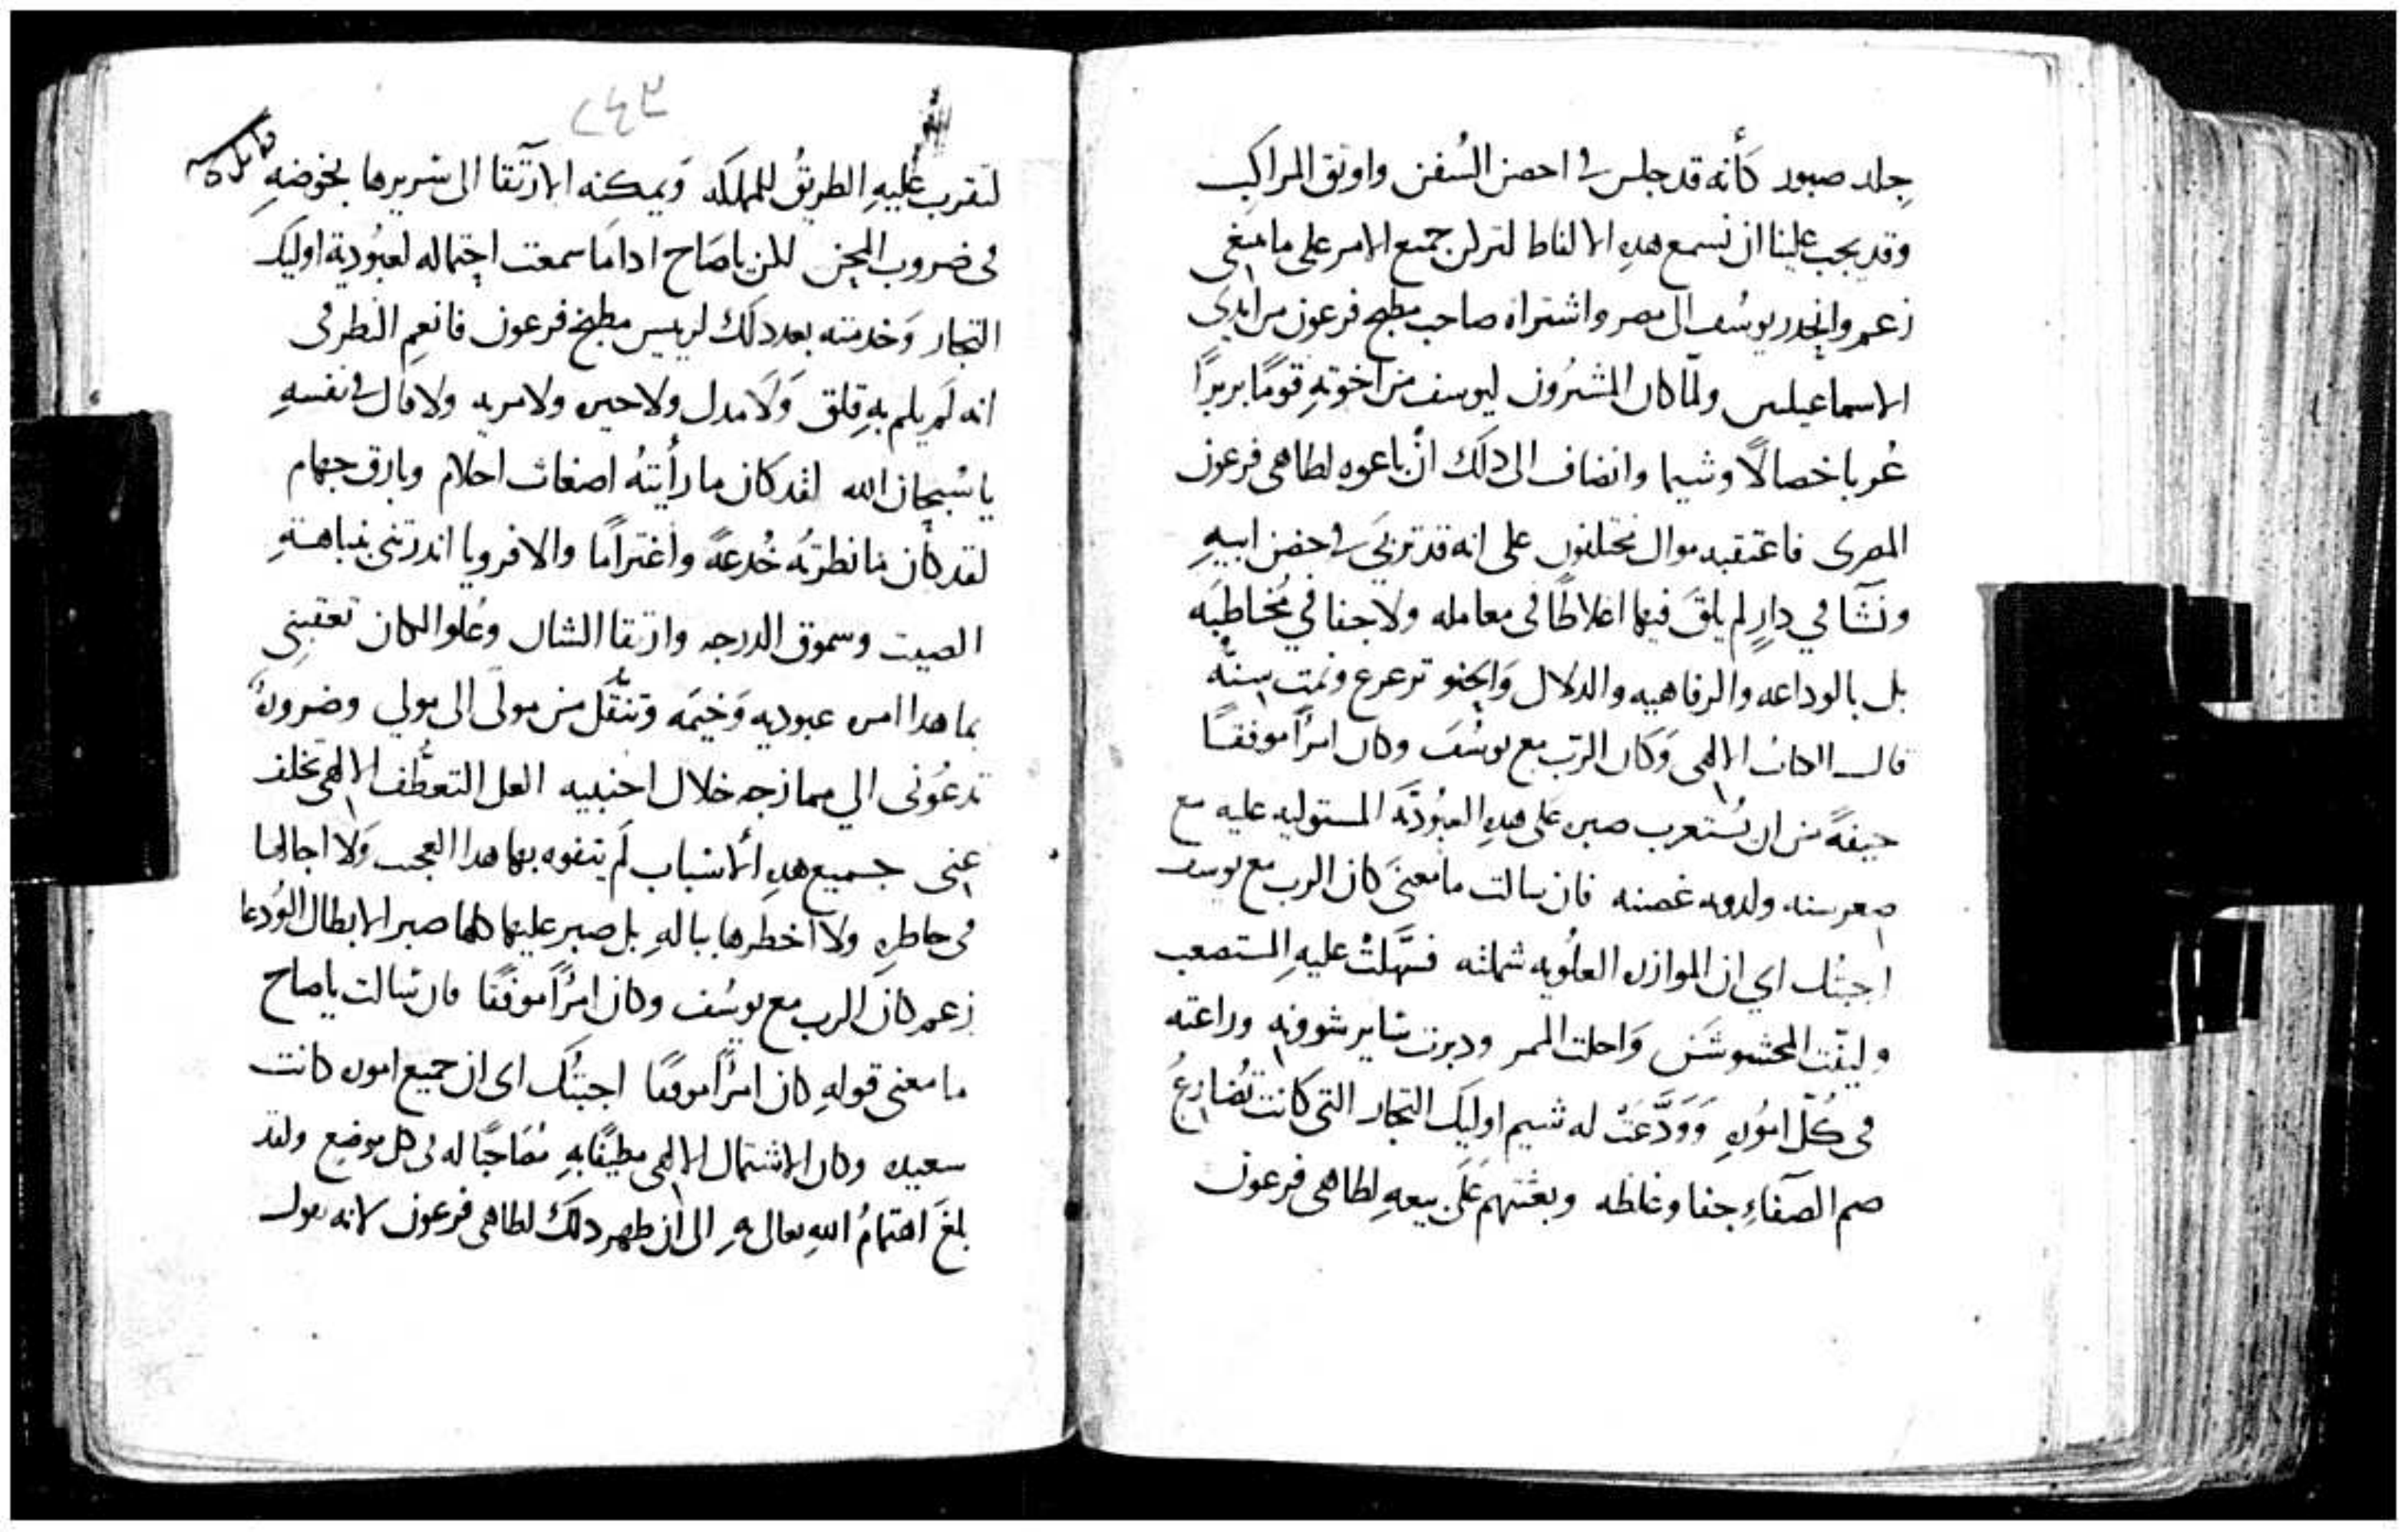 جلد صبور كأنه قد جلس في احصن السُفن واوثق المراكب
وقد يجب علينا ان نسمع هده الالفاظ لترلن جميع الامر على ما ينبغي
زعم وانحدر يوسُف الى مصر واشتراه صاحب مطبخ فرعون من ايدي
الاسماعيليين ولمّا كان المشترُون ليوسف من اخوتهِ قومًا بربرًا
عُربا خصالًا وشيما وانضاف الى دلك انْ باعوه لطاهي فرعون
المصرى فاعتقبه موال مختلفون على انه قد تربَّى في حضن ابيهِ
ونشَا في دارٍ لم يلقَ فيها اغلاظًا في معامله ولا جفا في مُخاطبَه
بل بالوداعه والرفاهيه والدلال وَالحنو ترعرع ونمت سِنّه
قال الكتاب الالهى وَكان الرب مع يوسُفَ وكان امرًا موفقًا
خيفةً من ان يُستغرب صبره على هدهِ العبُوديَّة المستوليه عليه مع
صغر سنه ولدونه غصنه فان سالت ما معنَى كان الرب مع يوسف
اجبتُك اي ان الموازره العلُويه شملته فسَهَّلتْ عليهِ المستصعب
وليَّنت المخشوشَن وَاحلت الممر ودبرت ساير شوونه وراعته
في كُلّ امُوره وَوَدَّعَتْ له شيم اوليك التجار التي كانت تُضارعُ
صم الصَّفاءِ جفا وغلظه وبعثتهم عَلَى بيعهِ لطاهى فرعون
٢٤٢
لتقرب عليهِ الطريقُ للمملكه وَيمكنه الارتقا الى سريرها بخوضهِ
في ضروب المحن لكن ياصَاح ادا ما سمعت احتماله لعبُودية اوليك
التجار وَخدمته بعد دلك لرييس مطبخ فرعون فانعِم النظر في
انه لَم يلم بهِ قلق وَلَا مدل ولا حيره ولا مريه ولا قال في نفسهِ
يا سُبحان الله لقد كان ما رأيتهُ اضغاث احلام وبارق جهام
لقد كان ما نظرتهُ خُدعةً واغترامًا والا فرويا اندرتني بنباهةِ
الصيت وسموق الدرجه وارتقا الشان وعُلو المكان تعقبني
بما هدا امره عبوديه وَخيمَه وتنقُّل من مولَى الى مولي وضرورةً
تدعُوني الي ممازجه خلال اجنبيه العل التعطُّف الالهى تخلف
عني جميع هدهِ الأسباب لَم يتفوه بها هدا العجب وَلَا اجالها
في خاطره ولا اخطرها ببالهِ بل صبر عليها كلها صبر الابطال الوُدعا
زعم كان الرب مع يوسُف وكان امرًا موفقًا فان سَالت ياصاح
ما معنى قولهِ كان امرًا موفقًا اجبتُكَ اى ان جميع اموره كانت
سعيده وكان الاشتمال الالهى مطيفًا بهِ مُصَاحبًا له في كل موضع ولقد
بلغَ اهتمامُ اللهِ تعالى بهِ الى ان ظهر دلك لطاهى فرعون لانه يقول